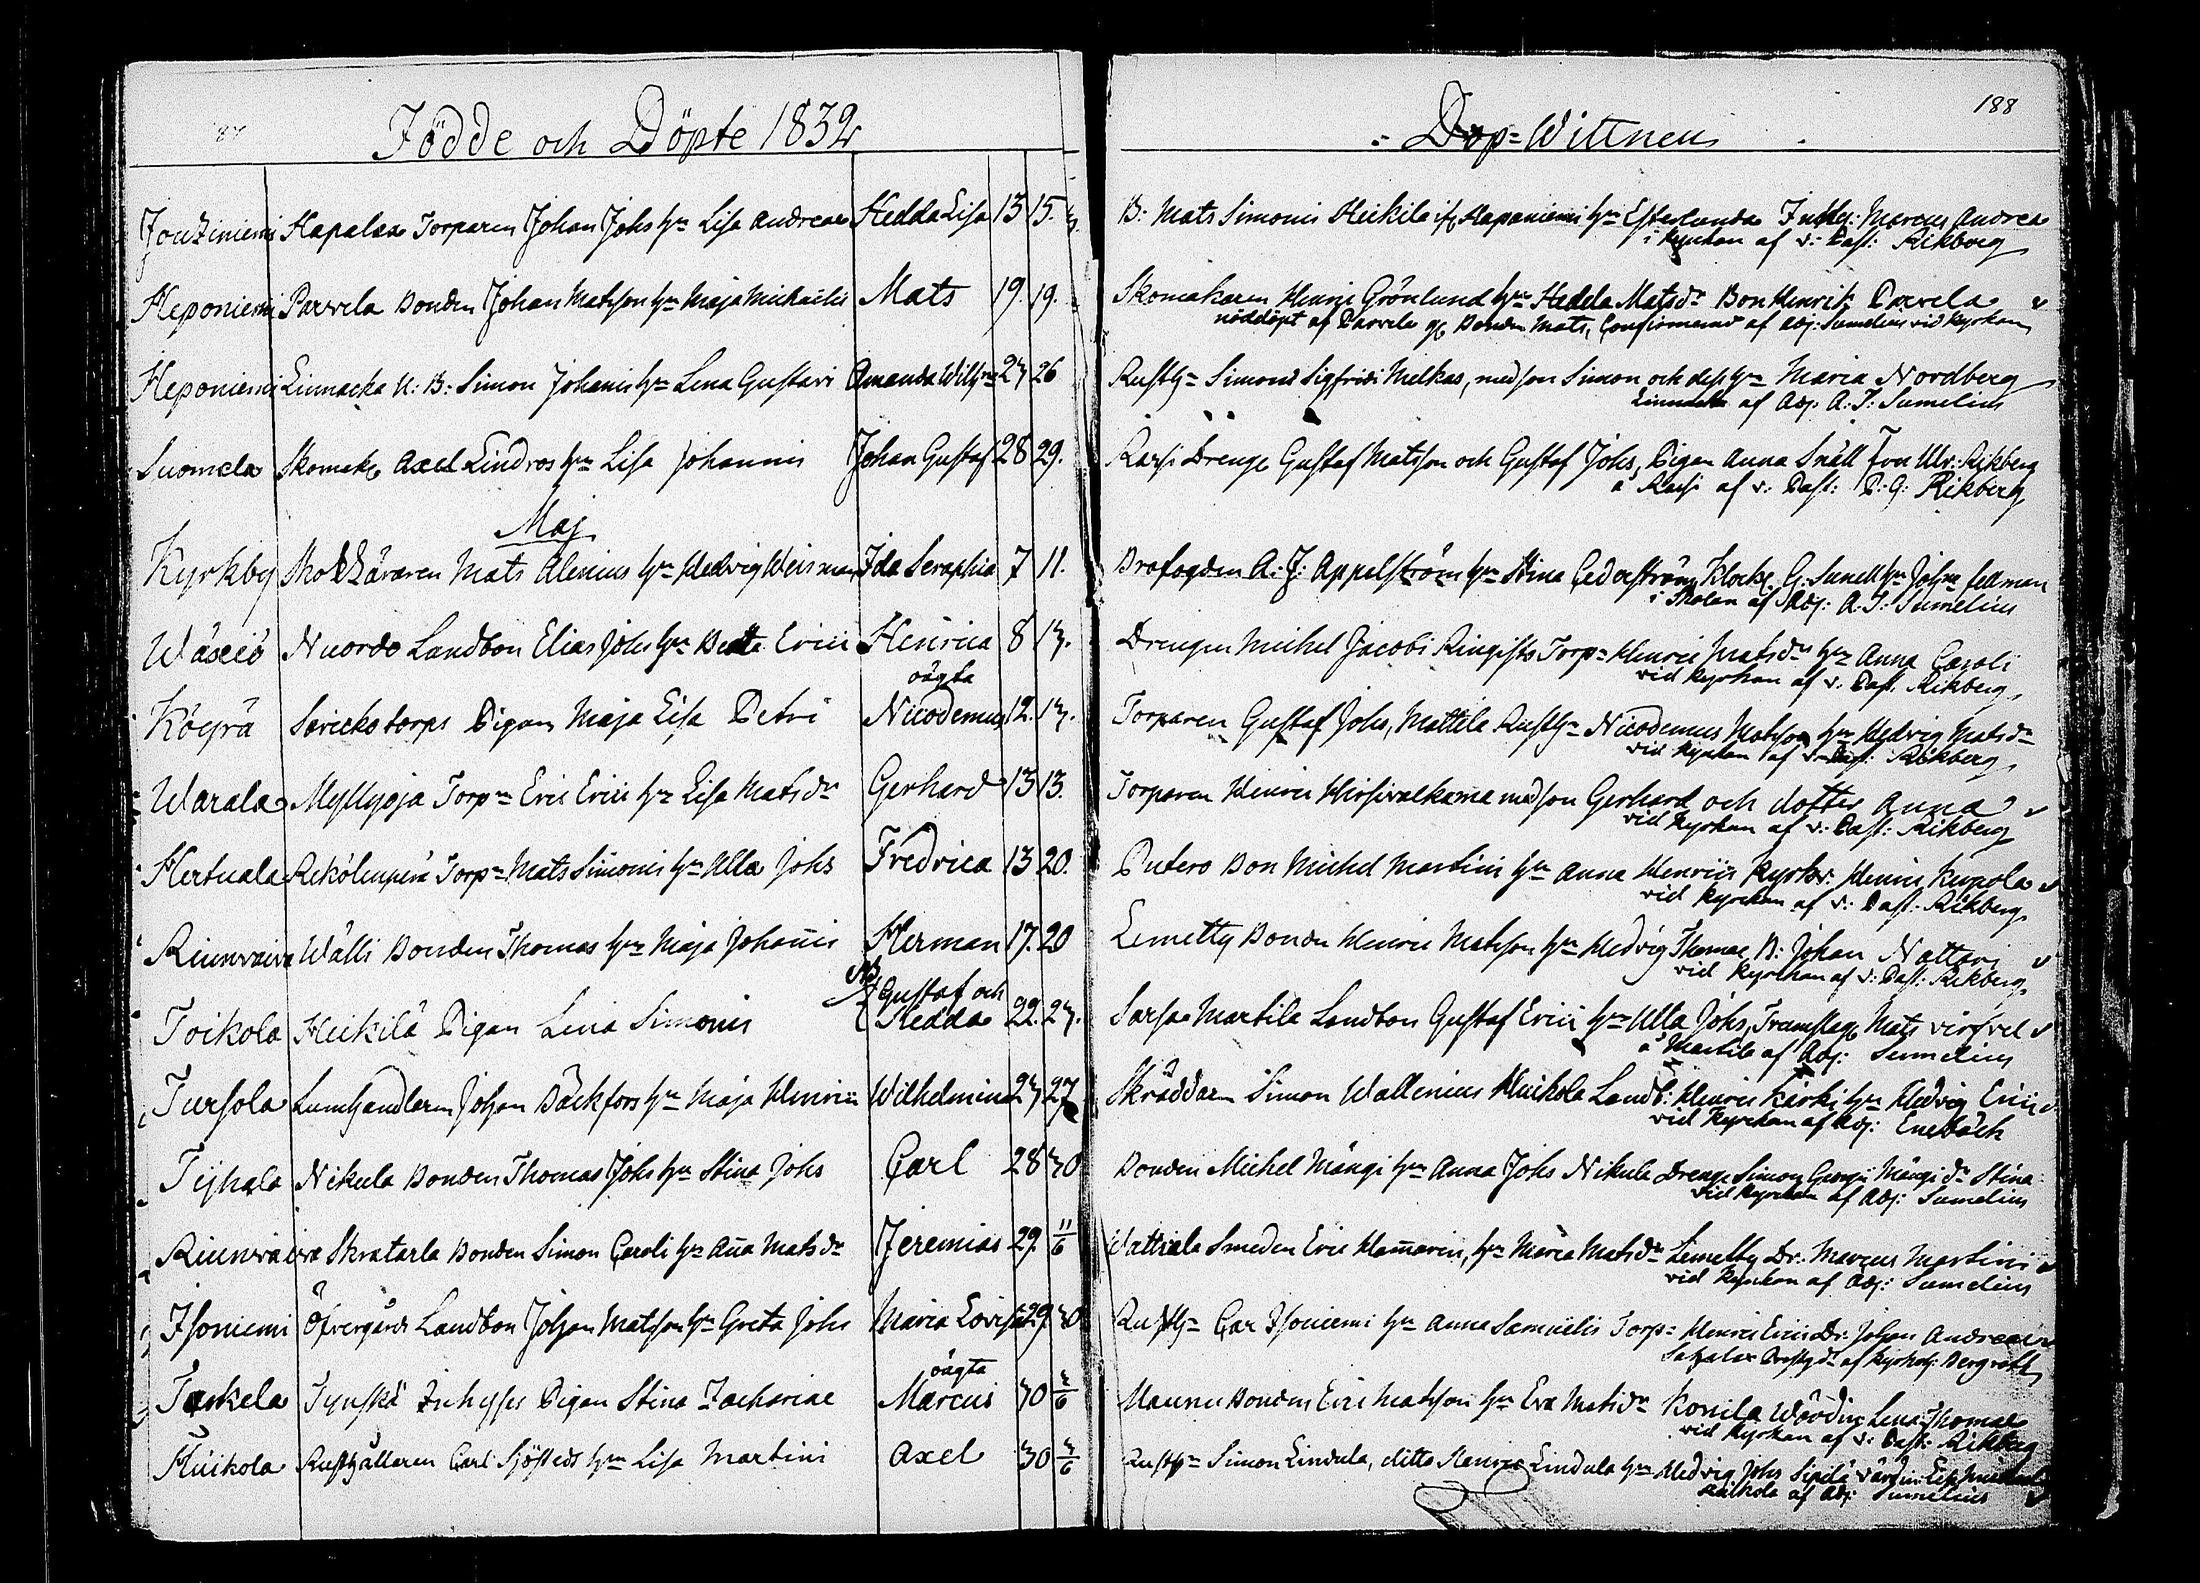 87
Födde och Döpte 1832
Jouziniemi Hapalax Torparen Johan Johs hu Lisa Andreae Hedda Lisa 13 15.
Heponiemi Parvela Bonden Johan Matsson hu Maja Michaelis Mats 19. 19.
Heponiemi Linnacka U: B: Simon Johanis hu Lena Gustavi Amanda Wilh:na 23 26
Suomela Skomak: Axel Lindros hu Lisa Johannis Johan Gustaf 28 29.
Maj
Kyrkby Mats Alenius hu Hedvig Weisman Ida Seraphia 7 11.
Wäxiö Nuordo Landbon Elias Johs hu Beata Erici Henrica 8 13.
oägta
Köyrä torps Pigan Maja Lisa Petri Nicodemus 12. 13.
Warala Myllyoja Torp:n Eric Erici hu Lisa Matsdr Gerhard 13 13.
Hertuala Torp:n Mats Simonis hu Ulla Johs Fredrica 13 20.
Riunwaiva Wälli Bonden Thomas hu Maja Johanis Herman 17. 20
Gustaf och
Toikola Heikilä Pigan Lena Simonis Hedda 22. 27.
Tursola Lumphandlaren Johan Bäckfors hu Maja Henrici Wilhelmina 23 27
Tyhala Nikula Bonden Thomas Johs hu Stina Johs Carl 28 30
Riunwaiva Skratarla Bonden Simon Caroli hu Aña Matsdr Jeremias 29. 11/6
Isoniemi Öfvergårds Landbon Johan Matsson hu Greta Johs Maria Lovisa 29. 30
oägta
Taskela Tynskä Inhyses Pigan Stina Zachariae Marcus 30 3/6
Huikola Rusthållaren Carl Sjöstedt hu Lisa Martini Axel 30 3/6
188
Dop=Wittnen
B: Mats Simonis Heikila if: Hapaniemi hu Marcus Andreae
i kyrkan af v: Past: Rikberg
Skomakaren Henric Grönlund hu Hedda Matsdr Bon Henrik Parvela
nöddöpt af Parvela Bonden Mats, Confirmerad af Adj: Sumelius vid kyrkan
Rusth:n Simond Sigfridi Melkas, med son Simon och dess hu Maria Nordberg
Linnacka af Adj. A: J: Sumelius
Karsi Drenge Gustaf Matsson och Gustaf Johs, Pigan Anna Snäll Fru Ulr: Rikberg
å Karsi af v: Past: P: G: Rikberg
Brofogden A: J: Appelström hu Stina Cederström Klock: G: Sunell hu Johna Fellman
i Skolan af Adj: A: J: Sumelius
Drengen Michel Jacobi Torp:n Henric Matsdr hu Anna Caroli
vid kyrkan af v. Past. Rikberg
Torparen Gustaf Johs, Mattila Rusth:n Nicodemus Matsson hu Hedvig Matsdr
vid kyrkan af v: Past: Rikberg
Torparen Henric Hirsivalkama med son Gerhard och dotter Anna
vid kyrkan af v: Past: Rikberg
Putero Bon Michel Martini hu Anna Henrici Kyrkv: Henric Kupola
vid kyrkan af v: Past: Rikberg
Lemetty Bonden Henric Matsson hu Hedvig Thomae B: Johan Nattari
vid kyrkan af v: Past: Rikberg
Sarsa Martila Landbon Gustaf Erici hu Ulla Johs, Trumslag: Mats Virfvel
å Martila af Adj: Sumelius
Skräddaren Simon Wallenius Huikola Landb: Henric Kärki hu Hedvig Ericid:
vid kyrkan af Adj: Enebäck
Bonden Michel Mängi hu Anna Johs Nikula Drenge Simon Georgii Mängi dr Stina
vid kyrkan af Adj: Sumelius
Wattiala Smeden Eric Hamarin, hu Maria Matsdr Lemetty Dr: Marcus Martini
vid kyrkan af Adj: Sumelius
Rusth:n Car Isoniemi hu Anna Samuelis Torp: Henric Erici Dr. Johan Andreae
af Kyrkoh: Bergroth
Maunu Bonden Eric Matsson hu Eva Matsdr Konila Wärdin Lena Thomae
vid kyrkan af v: Past: Rikberg
Rusth:n Simon Lindula, ditto Henric Lindula hu Hedvig Johs Sipilä värdin
af Adj: Sumelius